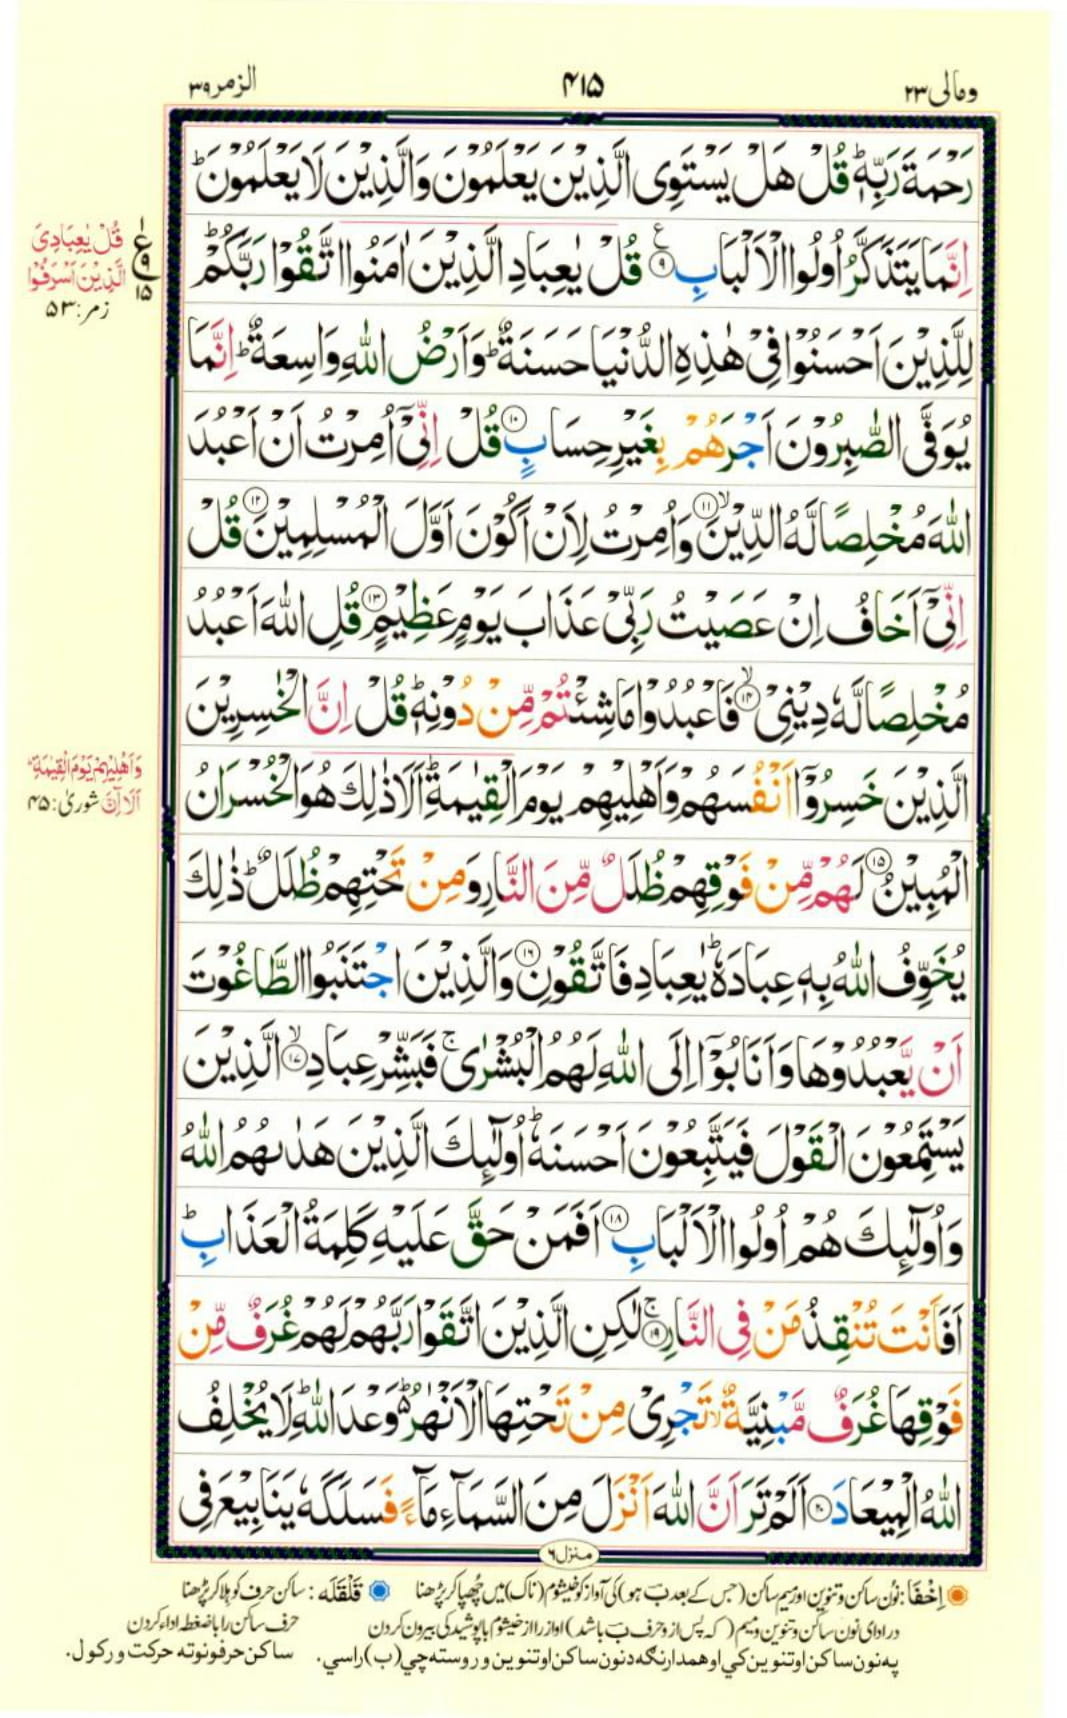 الزمر ٣٩
٤١٥
ومالی ٢٣
رَحْمَةَ رَبِّهٖ ؕ قُلْ هَلْ يَسْتَوِی الَّذِيْنَ يَعْلَمُوْنَ وَالَّذِيْنَ لَا يَعْلَمُوْنَ ؕ
اِنَّمَا يَتَذَكَّرُ اُولُوا الْاَلْبَابِ ۝٩ قُلْ يٰعِبَادِ الَّذِيْنَ اٰمَنُوا اتَّقُوْا رَبَّكُمْ ؕ
لِلَّذِيْنَ اَحْسَنُوْا فِیْ هٰذِهِ الدُّنْيَا حَسَنَةٌ ؕ وَاَرْضُ اللّٰهِ وَاسِعَةٌ ؕ اِنَّمَا
يُوَفَّی الصّٰبِرُوْنَ اَجْرَهُمْ بِغَيْرِ حِسَابٍ ۝١٠ قُلْ اِنِّیْۤ اُمِرْتُ اَنْ اَعْبُدَ
اللّٰهَ مُخْلِصًا لَّهُ الدِّيْنَ ۙ۝١١ وَاُمِرْتُ لِاَنْ اَكُوْنَ اَوَّلَ الْمُسْلِمِيْنَ ۝١٢ قُلْ
اِنِّیْۤ اَخَافُ اِنْ عَصَيْتُ رَبِّیْ عَذَابَ يَوْمٍ عَظِيْمٍ ۝١٣ قُلِ اللّٰهَ اَعْبُدُ
مُخْلِصًا لَّهٗ دِيْنِیْ ۙ۝١٤ فَاعْبُدُوْا مَا شِئْتُمْ مِّنْ دُوْنِهٖ ؕ قُلْ اِنَّ الْخٰسِرِيْنَ
الَّذِيْنَ خَسِرُوْۤا اَنْفُسَهُمْ وَاَهْلِيْهِمْ يَوْمَ الْقِيٰمَةِ ؕ اَلَا ذٰلِكَ هُوَ الْخُسْرَانُ
الْمُبِيْنُ ۝١٥ لَهُمْ مِّنْ فَوْقِهِمْ ظُلَلٌ مِّنَ النَّارِ وَمِنْ تَحْتِهِمْ ظُلَلٌ ؕ ذٰلِكَ
يُخَوِّفُ اللّٰهُ بِهٖ عِبَادَهٗ ؕ يٰعِبَادِ فَاتَّقُوْنِ ۝١٦ وَالَّذِيْنَ اجْتَنَبُوا الطَّاغُوْتَ
اَنْ يَّعْبُدُوْهَا وَاَنَابُوْۤا اِلَی اللّٰهِ لَهُمُ الْبُشْرٰی ۚ فَبَشِّرْ عِبَادِ ۙ۝١٧ الَّذِيْنَ
يَسْتَمِعُوْنَ الْقَوْلَ فَيَتَّبِعُوْنَ اَحْسَنَهٗ ؕ اُولٰٓئِكَ الَّذِيْنَ هَدٰىهُمُ اللّٰهُ
وَاُولٰٓئِكَ هُمْ اُولُوا الْاَلْبَابِ ۝١٨ اَفَمَنْ حَقَّ عَلَيْهِ كَلِمَةُ الْعَذَابِ ؕ
اَفَاَنْتَ تُنْقِذُ مَنْ فِی النَّارِ ۚ۝١٩ لٰكِنِ الَّذِيْنَ اتَّقَوْا رَبَّهُمْ لَهُمْ غُرَفٌ مِّنْ
فَوْقِهَا غُرَفٌ مَّبْنِيَّةٌ ۙ تَجْرِیْ مِنْ تَحْتِهَا الْاَنْهٰرُ ؕ۬ وَعْدَ اللّٰهِ ؕ لَا يُخْلِفُ
اللّٰهُ الْمِيْعَادَ ۝٢٠ اَلَمْ تَرَ اَنَّ اللّٰهَ اَنْزَلَ مِنَ السَّمَآءِ مَآءً فَسَلَكَهٗ يَنَابِيْعَ فِی
منزل ٦
ع ٩ ١٥
قُلْ يٰعِبَادِیَ
الَّذِيْنَ اَسْرَفُوْا
زمر: ٥٣
وَاَهْلِيْهِمْ يَوْمَ الْقِيٰمَةِ ؕ
اَلَا اِنَّ شوریٰ: ٤٥
اِخْفَا: نُون ساکن و تنوین اور میم ساکن (جس کے بعد بَ ہو) کی آواز کو خیشوم (ناک) میں چُھپا کر پڑھنا
قَلْقَلَہ: ساکن حرف کو ہلا کر پڑھنا
در ادای نون ساکن و تنوین و میم (که پس از و حرف بَ باشد) آواز را از خیشوم با پوشیدگی بیرون کردن
حرف ساکن را با ضغطه ادا کردن
په نون ساکن او تنوین کي او همدارنګه د نون ساکن او تنوین وروسته چي (ب) راسي.
ساکن حرفونو ته حرکت ورکول.